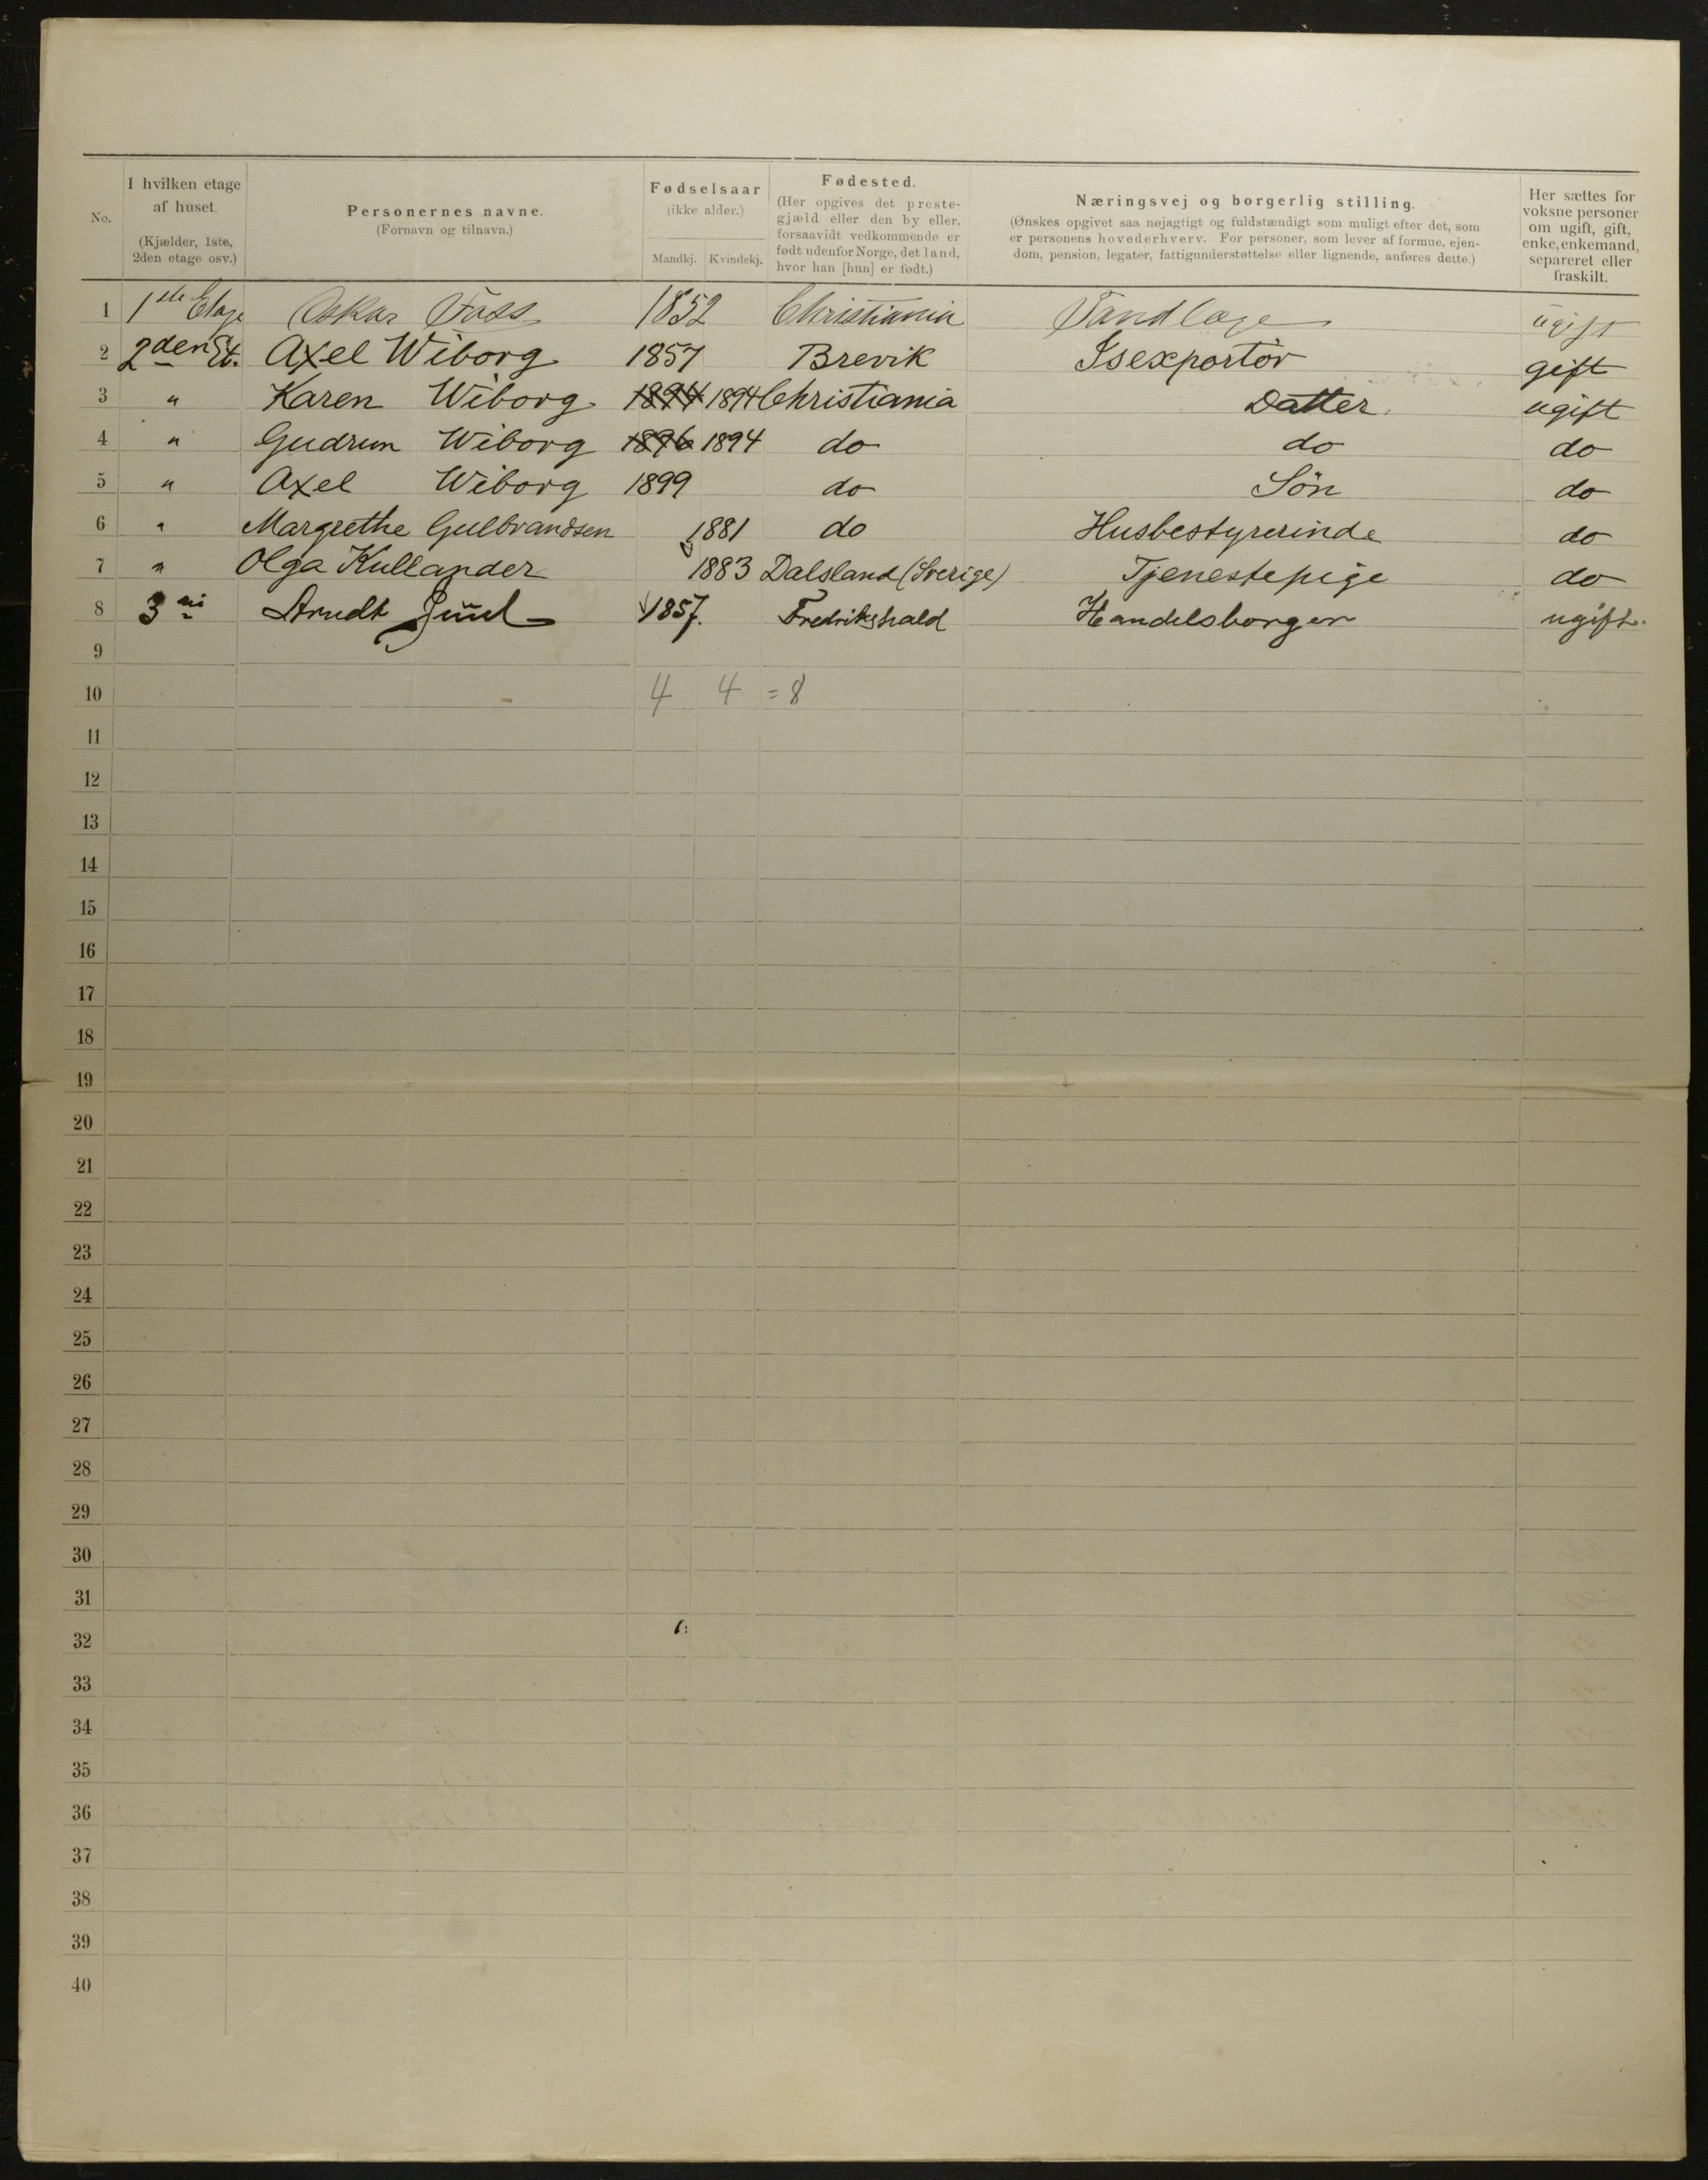 No.
I hvilken etage af huset. (Kjælder, 1ste, 2den etage osv.)
Personernes navne. (Fornavn og tilnavn.)
Fødselsaar (ikke alder.) Mandkj. Kvindekj.
Fødested. (Her opgives det prestegjæld eller den by eller, forsaavidt vedkommende er født udenfor Norge, det land, hvor han [hun] er født.)
Næringsvej og borgerlig stilling. (Ønskes opgivet saa nøjagtigt og fuldstændigt som muligt efter det, som er personens hovederhverv. For personer, som lever af formue, ejendom, pension, legater, fattigunderstøttelse eller lignende, anføres dette.)
Her sættes for voksne personer om ugift, gift, enke, enkemand, separeret eller fraskilt.
1 1ste Etage Oskar 1852 Christiania Tandlæge ugift
2 2den Et. Axel Wiborg 1857 Brevik Isexportör gift
3 " Karen Wiborg 1894 1894 Christiania Datter ugift
4 " Gudrun Wiborg 1896 1894 do do do
5 " Axel Wiborg 1899 do Sön do
6 " Margrethe Gulbrandsen 1881 do Husbestyrerinde do
7 " Olga Kullander 1883 Dalsland (Sverige) Tjenestepige do
8 3 Arndt Juul 1857. Fredrikshald Handelsborger ugift.
9
10 4 4 = 8
11
12
13
14
15
16
17
18
19
20
21
22
23
24
25
26
27
28
29
30
31
32
33
34
35
36
37
38
39
40